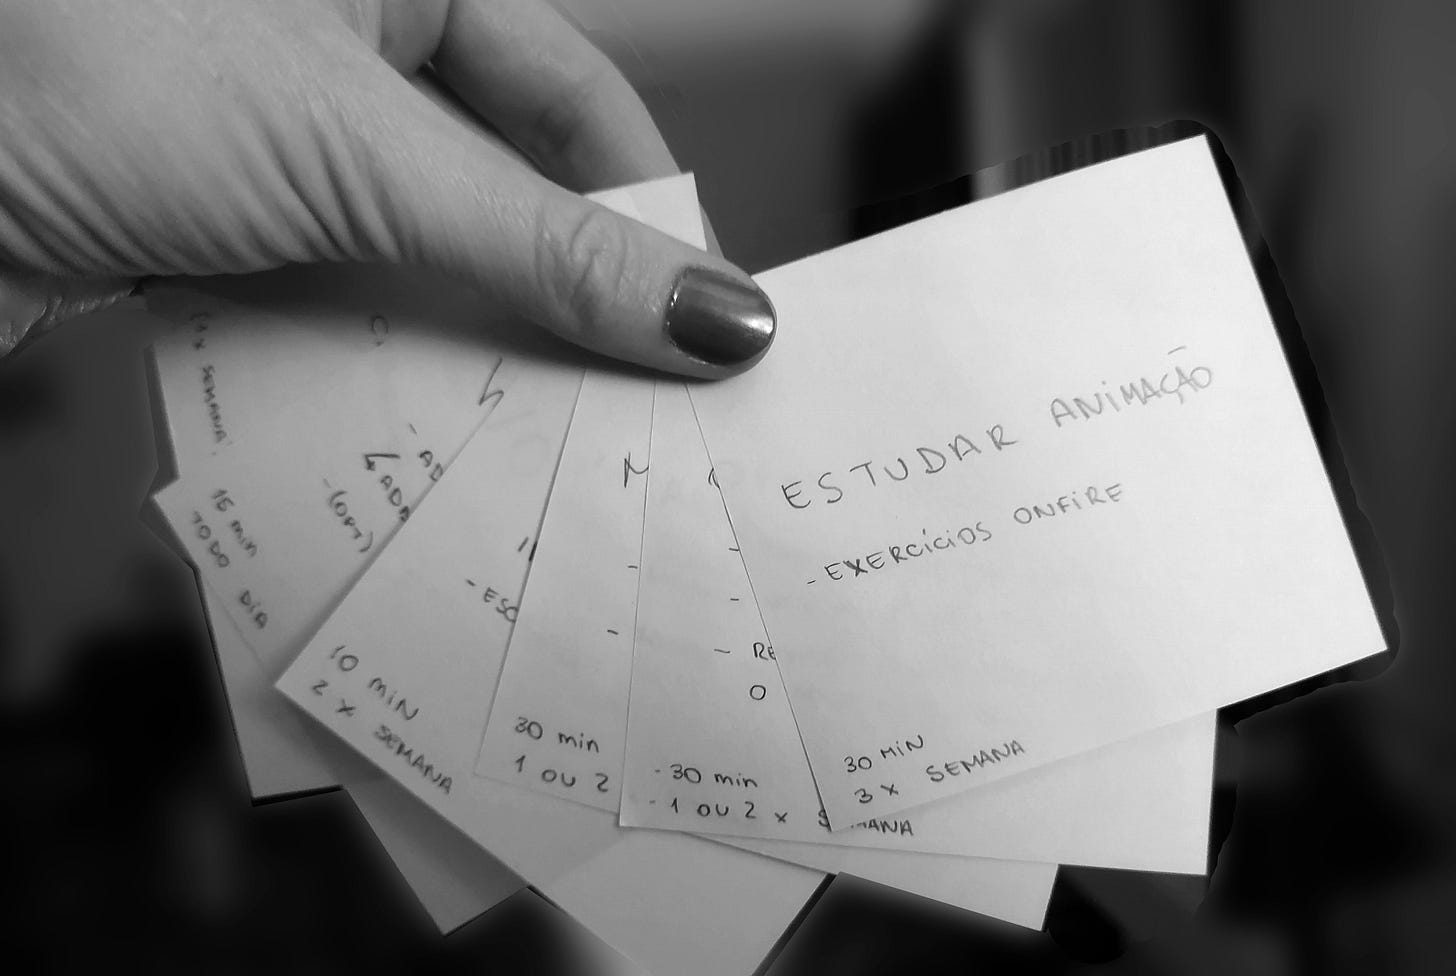 ESTUDAR ANIMAÇÃO
- EXERCÍCIOS ONFIRE
30 MIN
3 X SEMANA
- RE
O
- 30 min
- 1 OU 2 X SEMANA
30 min
1 OU 2
- ESC
10 MIN
2 X SEMANA
- (OPT)
15 min
TODO DIA
1X SEMANA